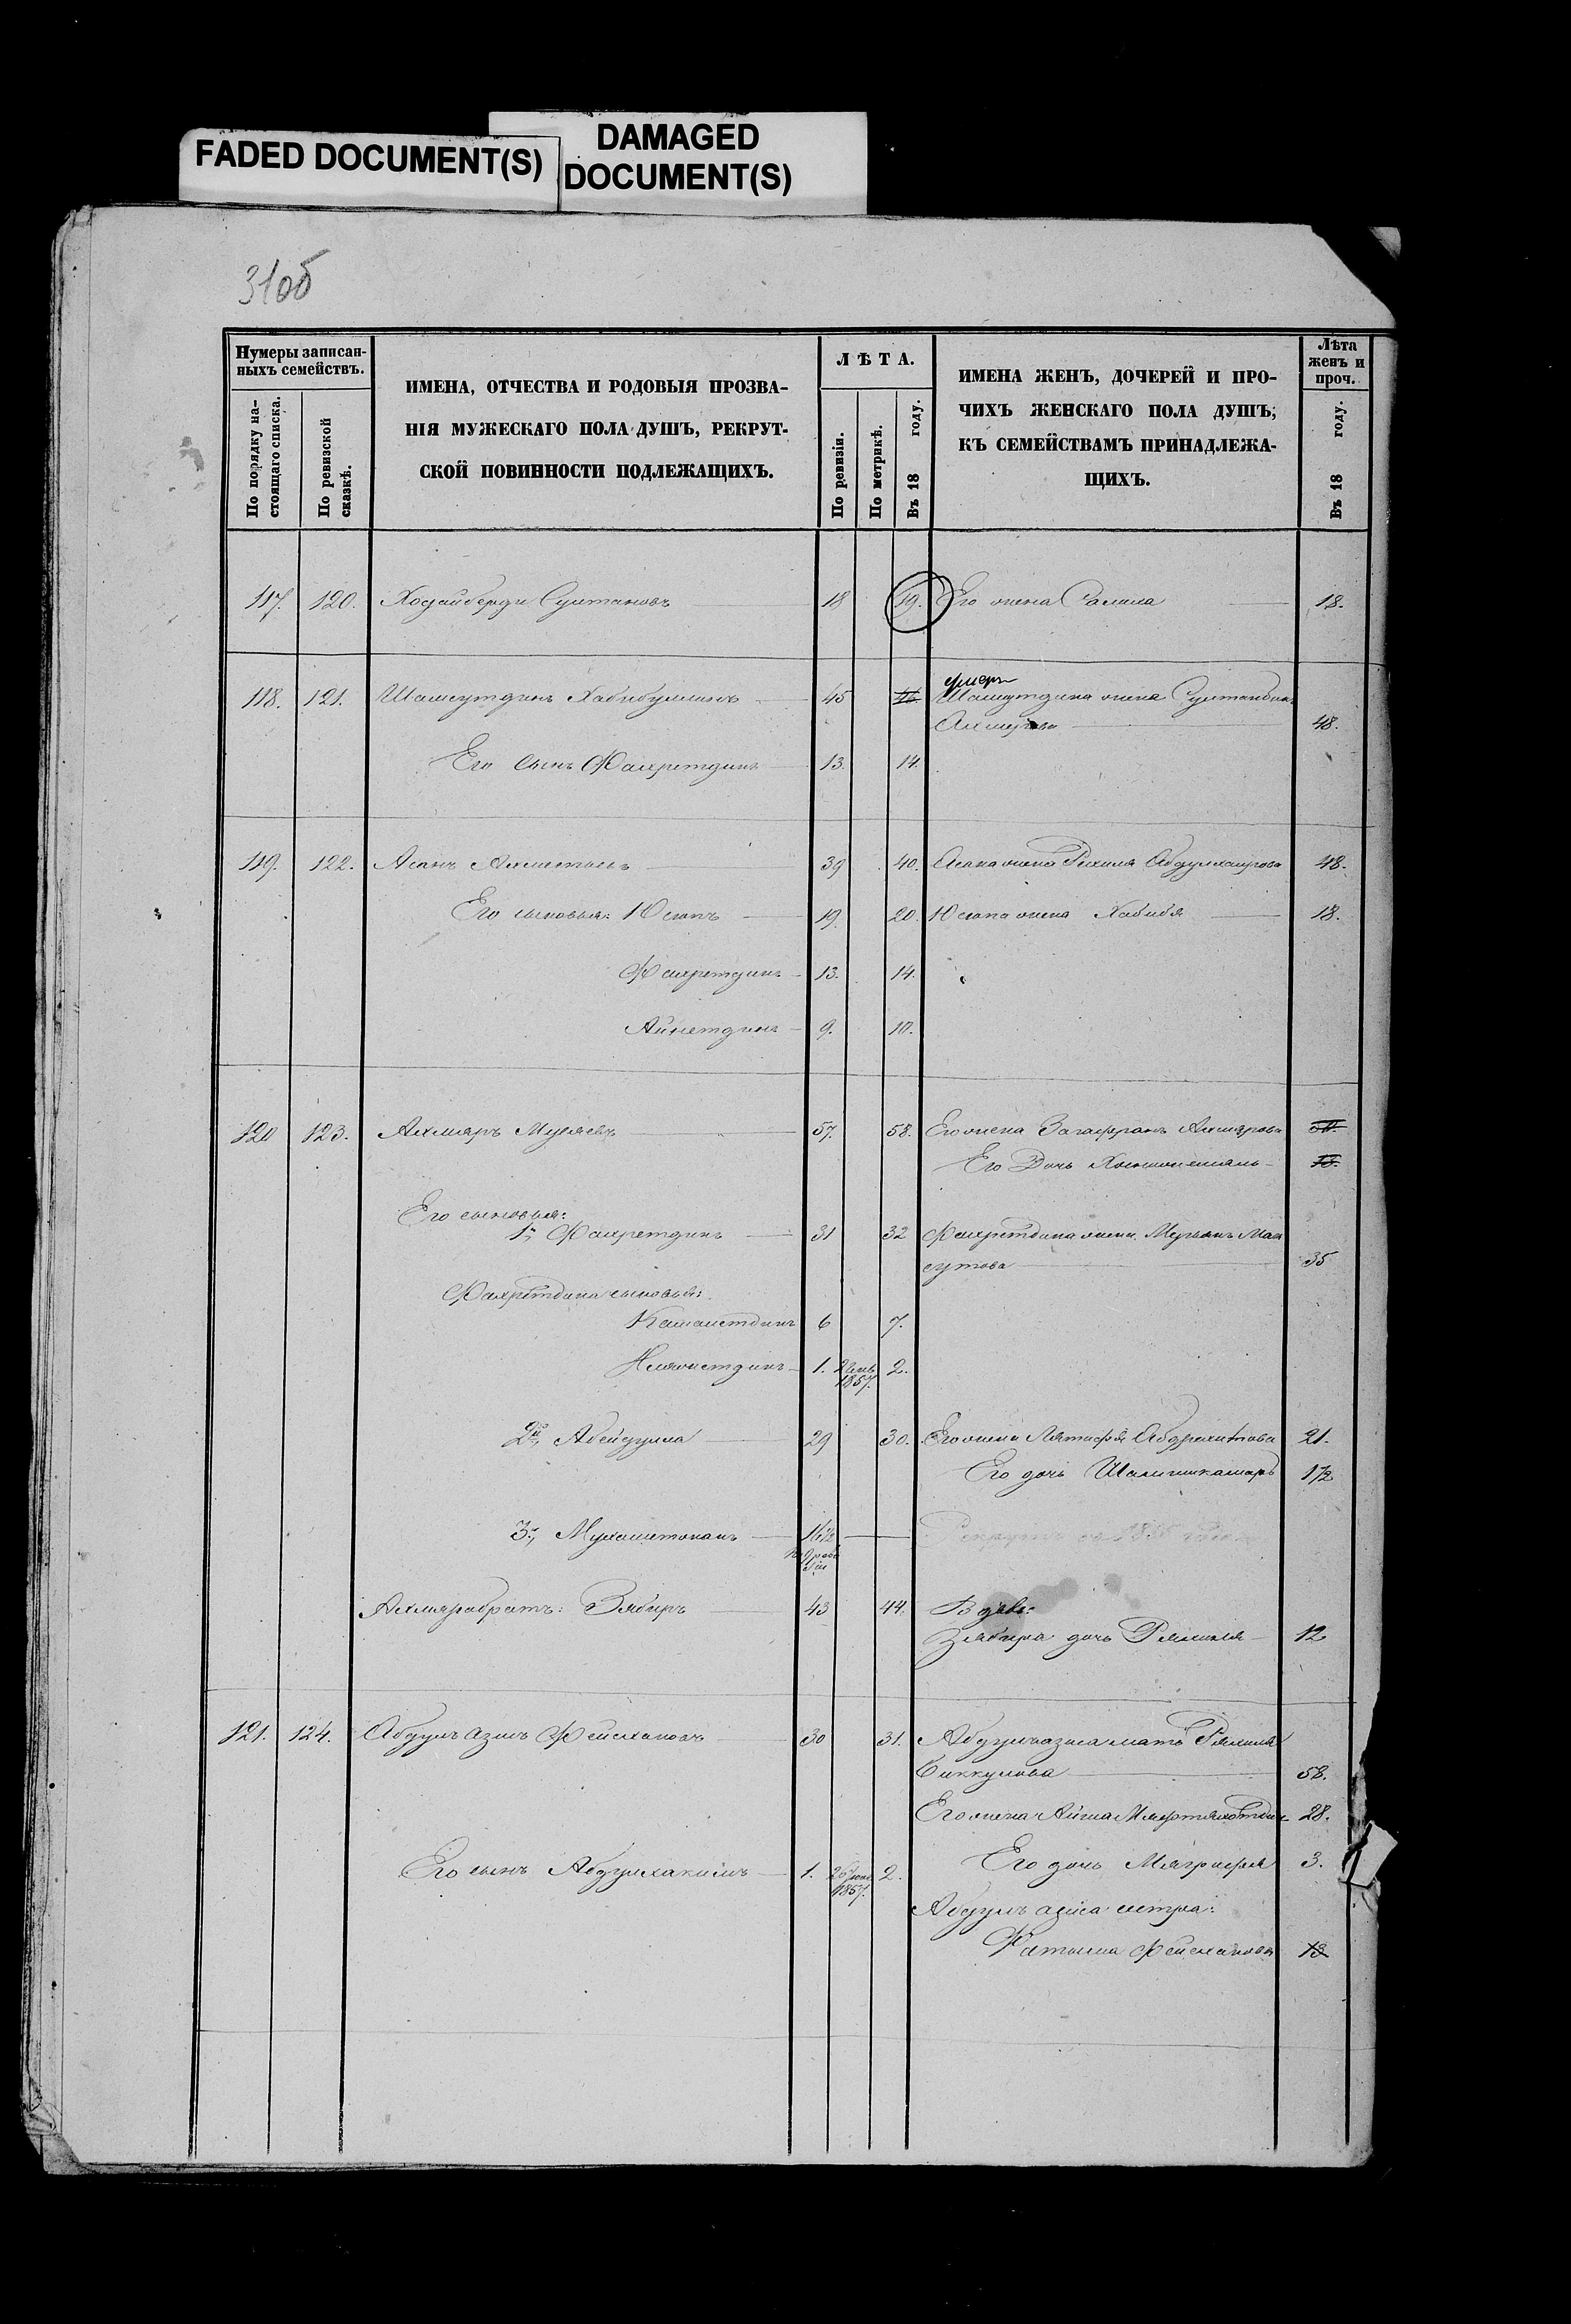 FADED DOCUMENT(S)
DAMAGED
DOCUMENT(S)
31об
Нумеры записан-
ныхъ семействъ.
По порядку на-
стоящаго списка.
По ревизской
сказкѣ.
ИМЕНА, ОТЧЕСТВА И РОДОВЫЯ ПРОЗВА-
НІЯ МУЖЕСКАГО ПОЛА ДУШЪ, РЕКРУТ-
СКОЙ ПОВИННОСТИ ПОДЛЕЖАЩИХЪ.
ЛѢТА.
По ревизіи.
По метрикѣ.
Въ 18 году.
ИМЕНА ЖЕНЪ, ДОЧЕРЕЙ И ПРО-
ЧИХЪ ЖЕНСКАГО ПОЛА ДУШЪ,
КЪ СЕМЕЙСТВАМЪ ПРИНАДЛЕЖА-
ЩИХЪ.
Лѣта
женъ и
проч.
Въ 18 году.
117. 120. Ходайберди Султановъ 18 19. Его жена Салима 18.
умеръ
118. 121. Шамсутдинъ Хабибуллинъ 45 Шамсутдина жена
48.
Его сынъ Фахретдинъ 13. 14.
119. 122. Асанъ Ахметевъ 39 40. Асана жена 48.
Его сыновья: Юсупъ 19. 20. Юсупа жена Хабибя 18.
Фахретдинъ 13. 14.
Айнетдинъ 9. 10.
120 123. Ахмяръ Мусяевъ 57. 58. Его жена Загафранъ Ахмярова
Его Дочь
Его сыновья:
1й, Фахретдинъ 31 32 Фахретдина жена Мерьямъ Мак
сутова 35
Фахретдина сыновья:
Камалетдинъ 6 7.
1. 1857. 2.
2й, Абейдулла 29 30. Его жена Лятифя 21.
Его дочь Шамшикамаръ 1/2
3й, Мухаметжанъ
Ахмяра братъ: Зябиръ 43 44. Вдовъ:
Зябира дочь 12
121. 124. Абдулъ Азисъ Фейсхановъ 30 31. Абдулъ азиса мать Рахима
Биккулова 58.
Его жена Айша 28.
Его сынъ Абдулхакимъ 1. 1857. 2. Его дочь Мягрифя 3.
Абдулъ азиса сестра:
Фатыма Фейсханова 13